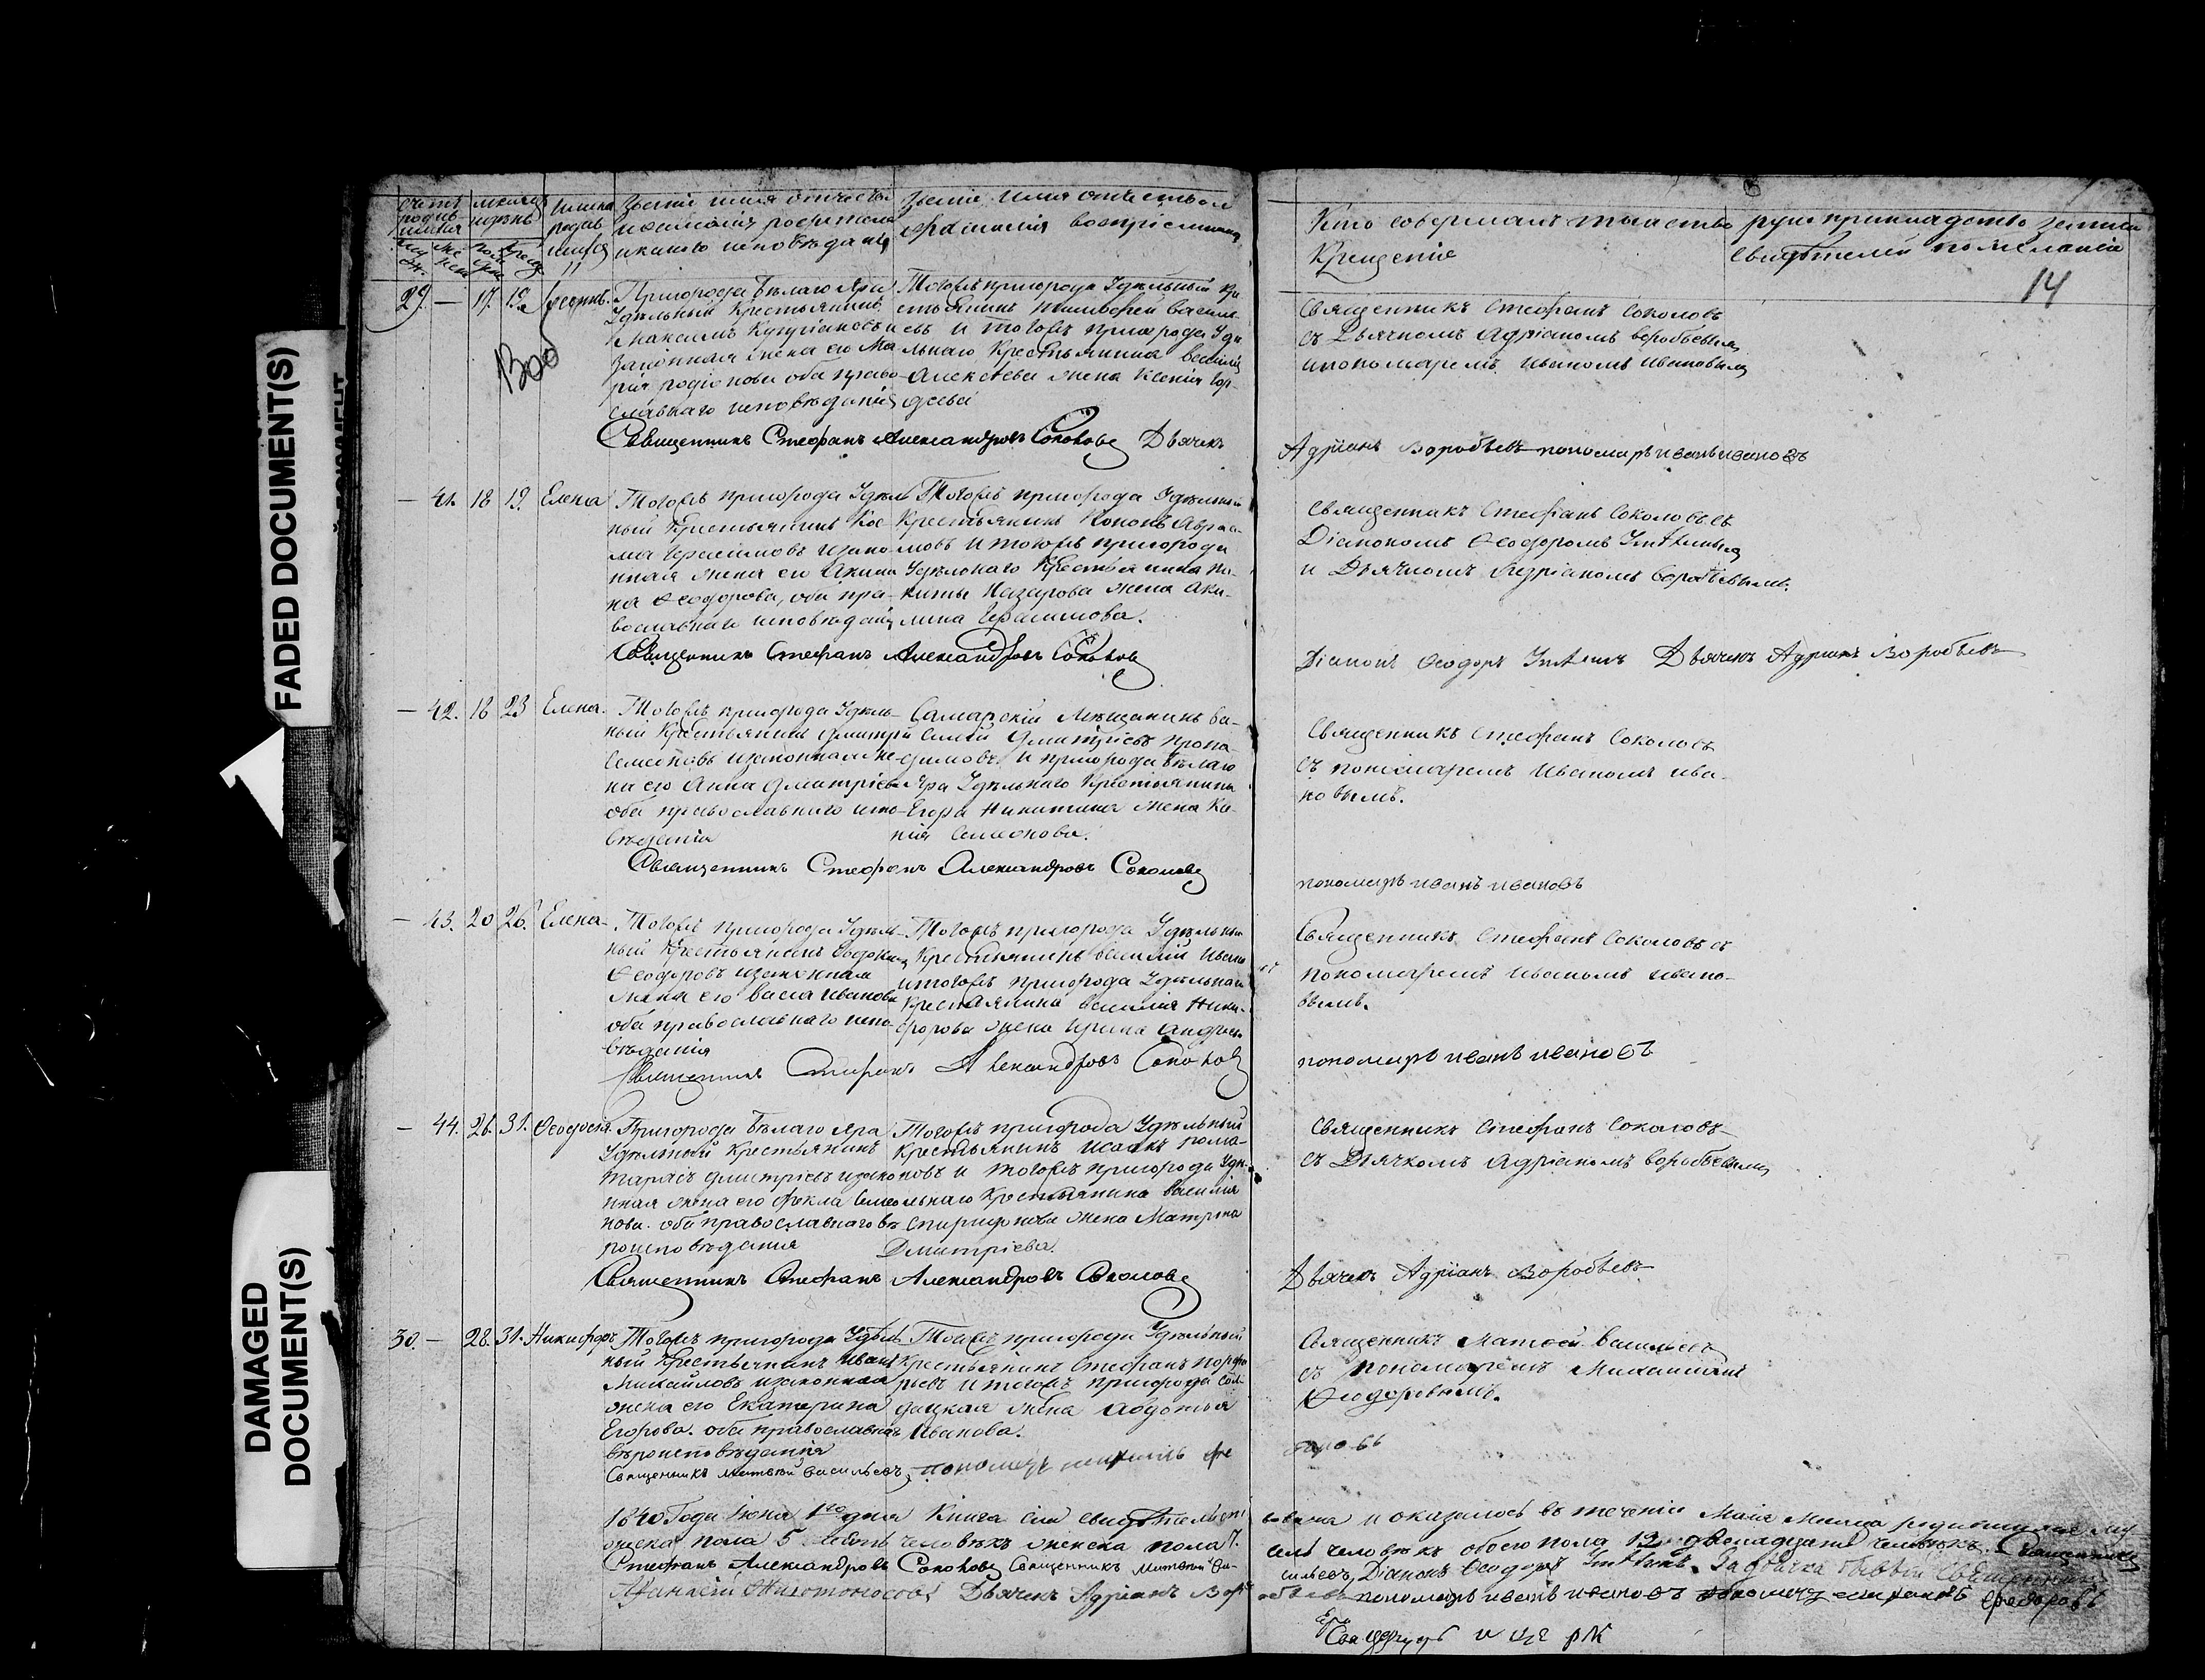 FADED DOCUMENT(S)
DAMAGED
DOCUMENT(S)
Кто совершалъ таинство
Крещенія
рукоприкладство записи
свидѣтелей по желанію
14
29. — 17. 19.
Пригорода Бѣлаго Яра
Удѣльный Крестьянинъ
Максимъ
законная жена его Ма-
рія Родіонова оба право-
славнаго исповѣданія
Тогожъ пригорода Удѣльный Кре-
стьянинъ Тимофей Василь-
евъ и тогожъ пригорода Удѣ-
льнаго Крестьянина Василія
Алексѣева жена Ксенія
Священникъ Стефанъ Соколовъ
съ Дьячкомъ Адріаномъ Воробьевымъ
и пономаремъ Иваномъ Ивановымъ
Священникъ Стефанъ Александровъ Соколовъ Дьячекъ
Адріанъ Воробьевъ пономарь иванъ ивановъ
— 41. 18 19. Елена
Тогожъ пригорода Удѣль-
ный Крестьянинъ Кос-
ма Герасимовъ и зако-
нная жена его Акили-
на Ѳеодорова, оба пра-
вославнаго исповѣданія
Тогожъ пригорода Удѣльный
Крестьянинъ Кононъ Авраа-
мовъ и тогожъ пригорода
Удѣльнаго Крестьянина Ни-
киты Назарова жена Аки-
лина Герасимова.
Священникъ Стефанъ Соколовъ съ
Діакономъ Ѳеодоромъ
и Дьячкомъ Адріаномъ Воробьевымъ.
Священникъ Стефанъ Александровъ Соколовъ
Діаконъ Ѳеодоръ Дьячекъ Адріанъ Воробьевъ
— 42. 18 23 Елена.
Тогожъ пригорода Удѣль-
ный Крестьянинъ Димитрій
Семеновъ и законная же-
на его Анна Дмитріева
оба православнаго испо-
вѣданія
Самарскій Мѣщанинъ Ва-
силій Дмитріевъ
и пригорода Бѣлаго
Яра Удѣльнаго Крестьянина
Егора Никитина жена
Семенова.
Священникъ Стефанъ Соколовъ
съ пономаремъ Иваномъ Ива-
новымъ.
Священникъ Стефанъ Александровъ Соколовъ
пономарь иванъ ивановъ
— 43. 20 26. Елена
Тогожъ пригорода Удѣль-
ный Крестьянинъ Евдокимъ
Ѳеодоровъ и законная
жена его Васса Иванова
оба православнаго испо-
вѣданія
Тогожъ пригорода Удѣльный
Крестьянинъ Василій Ивано
и тогожъ пригорода Удѣльнаго
Крестьянина Василія Ники-
форова жена Ирина Андрее
Священникъ Стефанъ Соколовъ съ
пономаремъ Иваномъ Ивано-
вымъ.
Священникъ Стефанъ Александровъ Соколовъ
пономарь иванъ ивановъ
— 44. 26. 31. Ѳеодосія.
Пригорода Бѣлаго Яра
Удѣльный Крестьянинъ
Тарасъ Дмитріевъ и зако-
нная жена его Ѳекла Семе-
нова. оба православнаго вѣ-
роисповѣданія
Тогожъ пригорода Удѣльный
Крестьянинъ Исаакъ Рома-
новъ и тогожъ пригорода Удѣ-
льнаго Крестьянина Василія
Спиридонова жена Матрона
Дмитріева.
Священникъ Стефанъ Соколовъ
съ Дьячкомъ Адріаномъ Воробьевымъ
Священникъ Стефанъ Александровъ Соколовъ
Дьячекъ Адріанъ Воробьевъ
30. — 28. 31. Никифоръ
Тогожъ пригорода Удѣль-
ный Крестьянинъ Иванъ
Михайловъ и законная
жена его Екатерина
Егорова. оба православнаго
вѣроисповѣданія
Тогожъ пригорода Удѣльный
Крестьянинъ Стефанъ Порфи-
рьевъ и тогожъ пригорода Сол-
дацкая жена Авдотья
Иванова.
Священникъ Матвей Васильевъ
съ пономаремъ Михаиломъ
Ѳеодоровымъ.
Священникъ Матвей Васильевъ, пономарь михаилъ фе
доровъ
1840 Года Іюня 1го дня Книга сія свидѣтельст
вована и оказалось въ теченіи Маія Месяца родившихся му-
жеска пола 5 человѣкъ женска пола 7.
человѣкъ обоего пола 12 двенадцать человѣкъ. Священникъ
Стефанъ Александровъ Соколовъ Священникъ Матвей Ва-
сильевъ, Діаконъ Ѳеодоръ
Дьячекъ Адріанъ Воро
бьевъ пономарь иванъ ивановъ пономарь михаилъ федоровъ